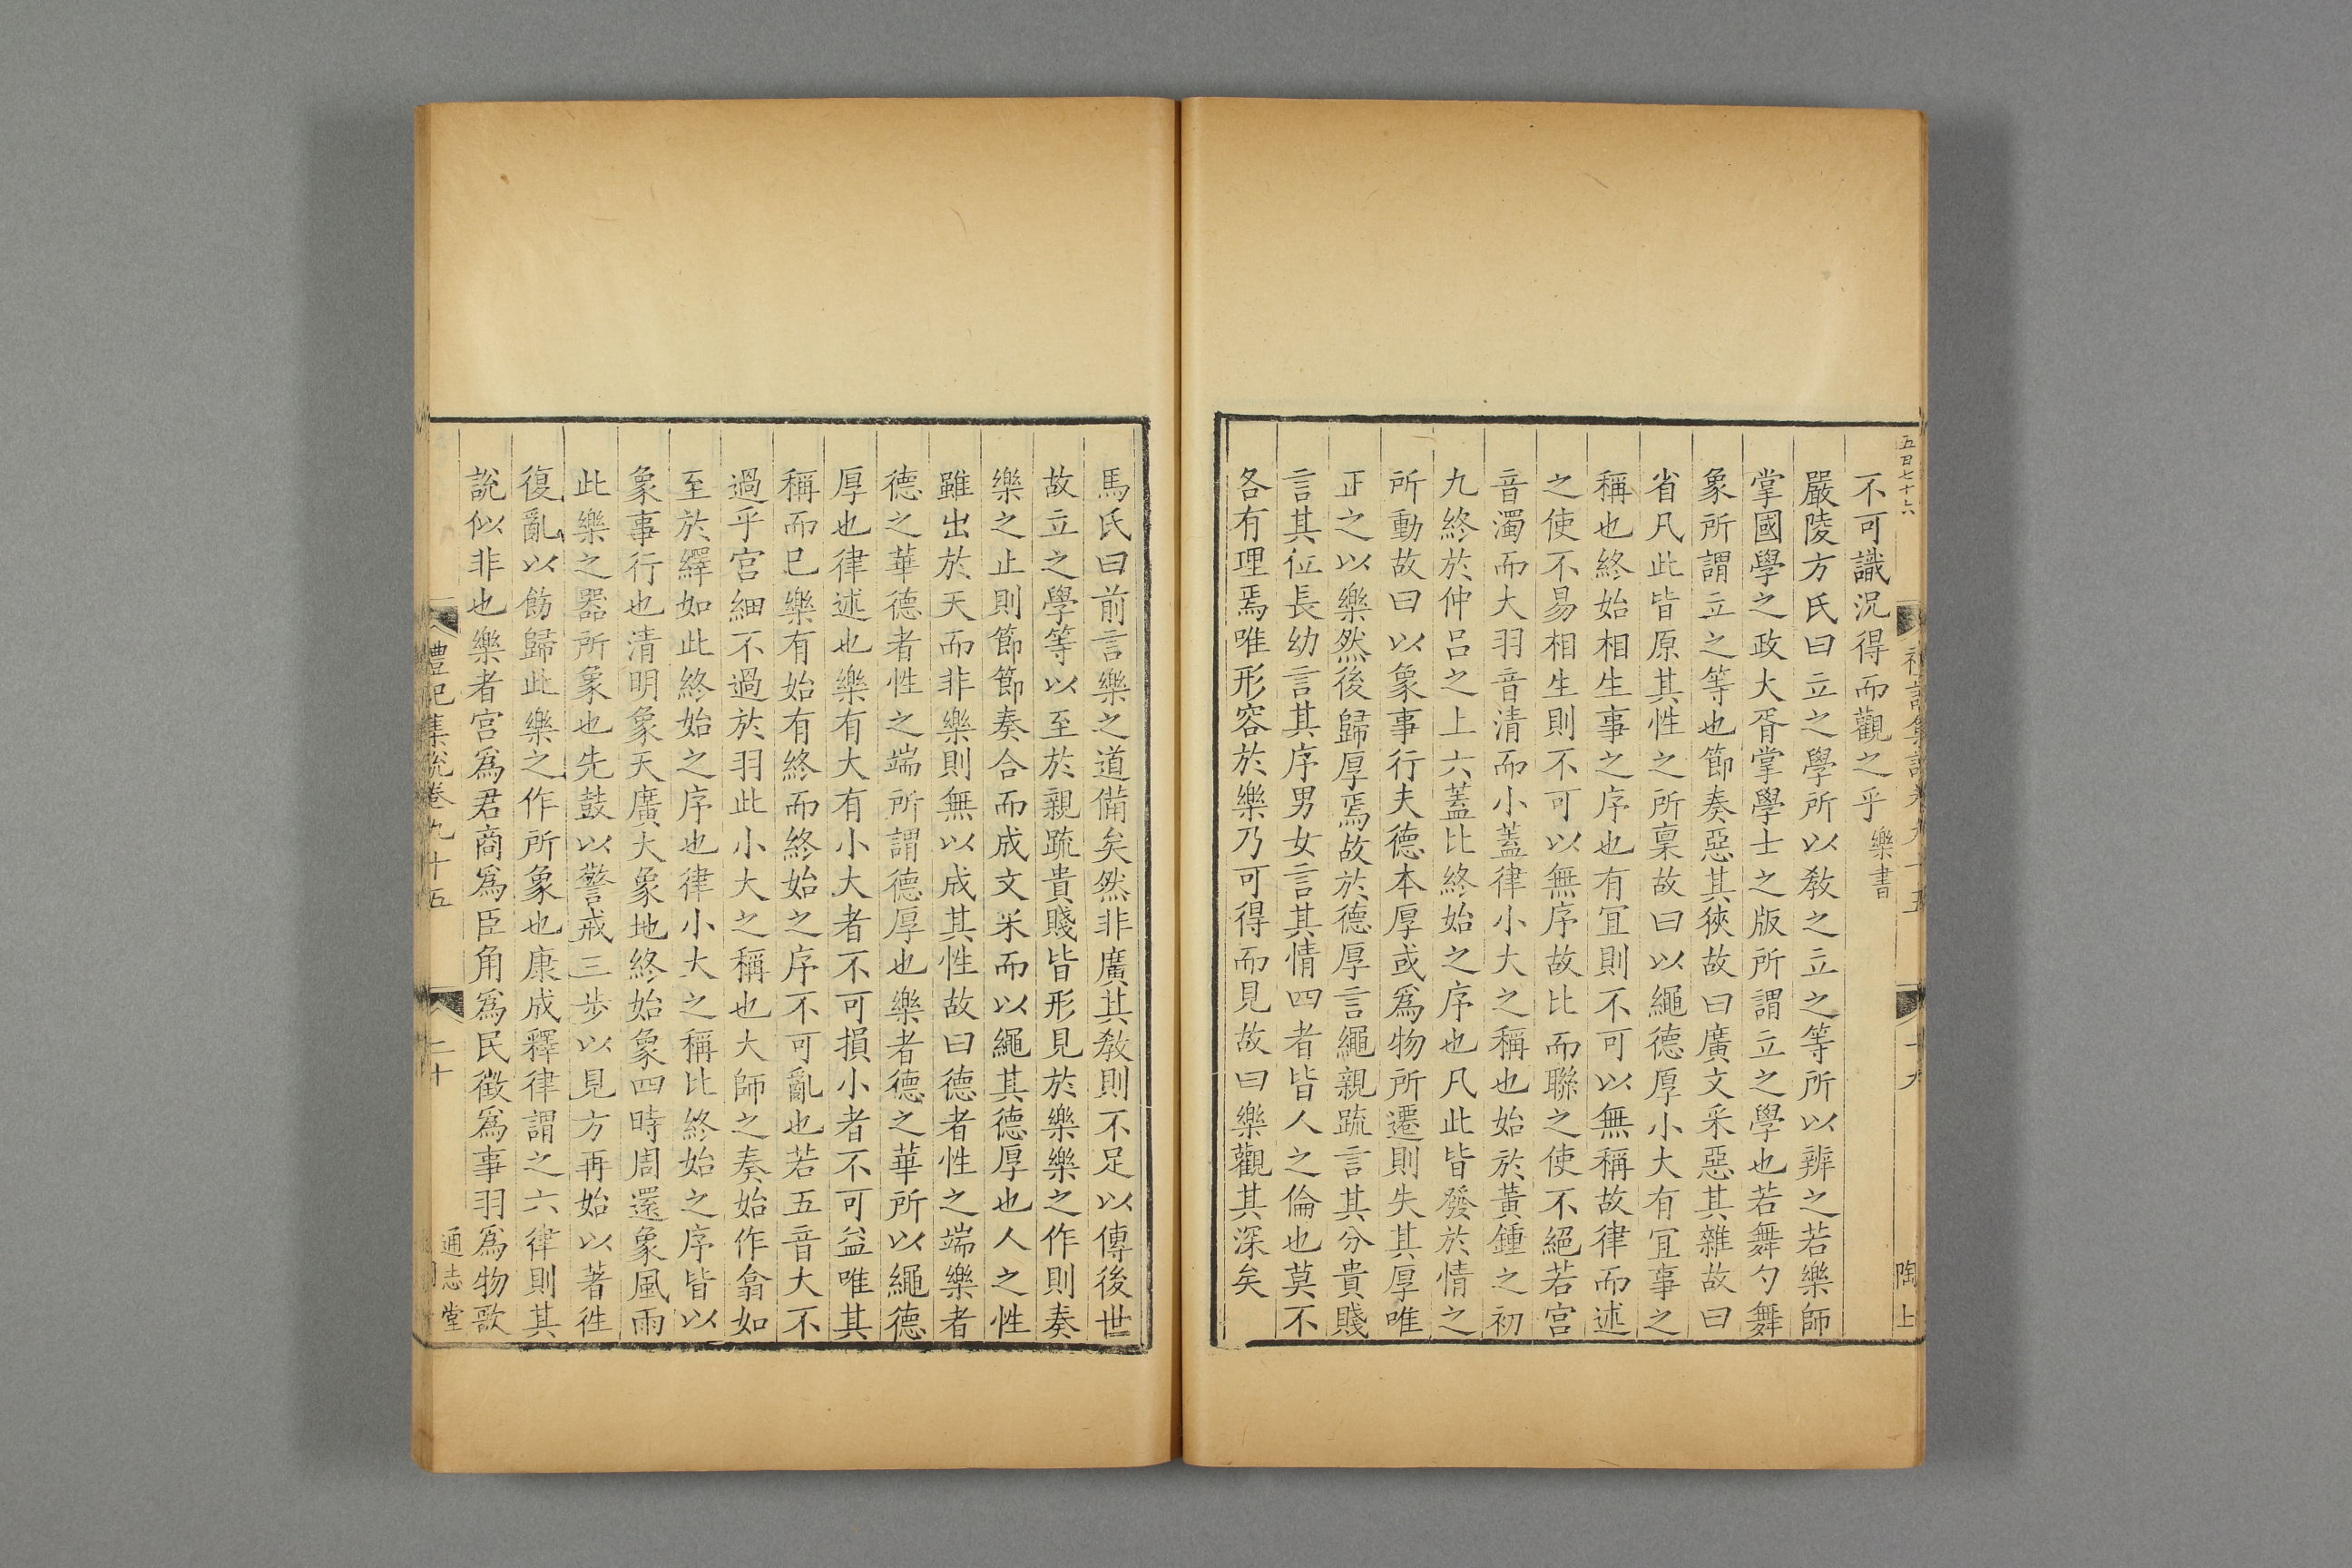 五百七十六
不可識況得而觀之乎 樂書
嚴陵方氏曰立之學所以教之立之等所以辨之若樂師
掌國學之政大胥掌學士之版所謂立之學也若舞勺舞
象所謂立之等也節奏惡其狹故曰廣文采惡其雜故曰
省凡此皆原其性之所稟故曰以繩德厚小大有宜事之
稱也終始相生事之序也有宜則不可以無稱故律而述
之使不易相生則不可以無序故比而聯之使不絕若宮
音濁而大羽音清而小蓋律小大之稱也始於黃鍾之初
九終於仲呂之上六蓋比終始之序也凡此皆發於情之
所動故曰以象事行夫德本厚或爲物所遷則失其厚唯
正之以樂然後歸厚焉故於德厚言繩親疏言其分貴賤
言其位長幼言其序男女言其情四者皆人之倫也莫不
各有理焉唯形容於樂乃可得而見故曰樂觀其深矣
禮記集說卷九十五
十九
陶上
馬氏曰前言樂之道備矣然非廣其教則不足以傳後世
故立之學等以至於親疏貴賤皆形見於樂樂之作則奏
樂之止則節節奏合而成文采而以繩其德厚也人之性
雖出於天而非樂則無以成其性故曰德者性之端樂者
德之華德者性之端所謂德厚也樂者德之華所以繩德
厚也律述也樂有大有小大者不可損小者不可益唯其
稱而已樂有始有終而終始之序不可亂也若五音大不
過乎宮細不過於羽此小大之稱也大師之奏始作翕如
至於繹如此終始之序也律小大之稱比終始之序皆以
象事行也清明象天廣大象地終始象四時周還象風雨
此樂之器所象也先鼓以警戒三步以見方再始以著徃
復亂以飭歸此樂之作所象也康成釋律謂之六律則其
說似非也樂者宮爲君商爲臣角爲民徵爲事羽爲物歌
禮記集說卷九十五
二十
通志堂